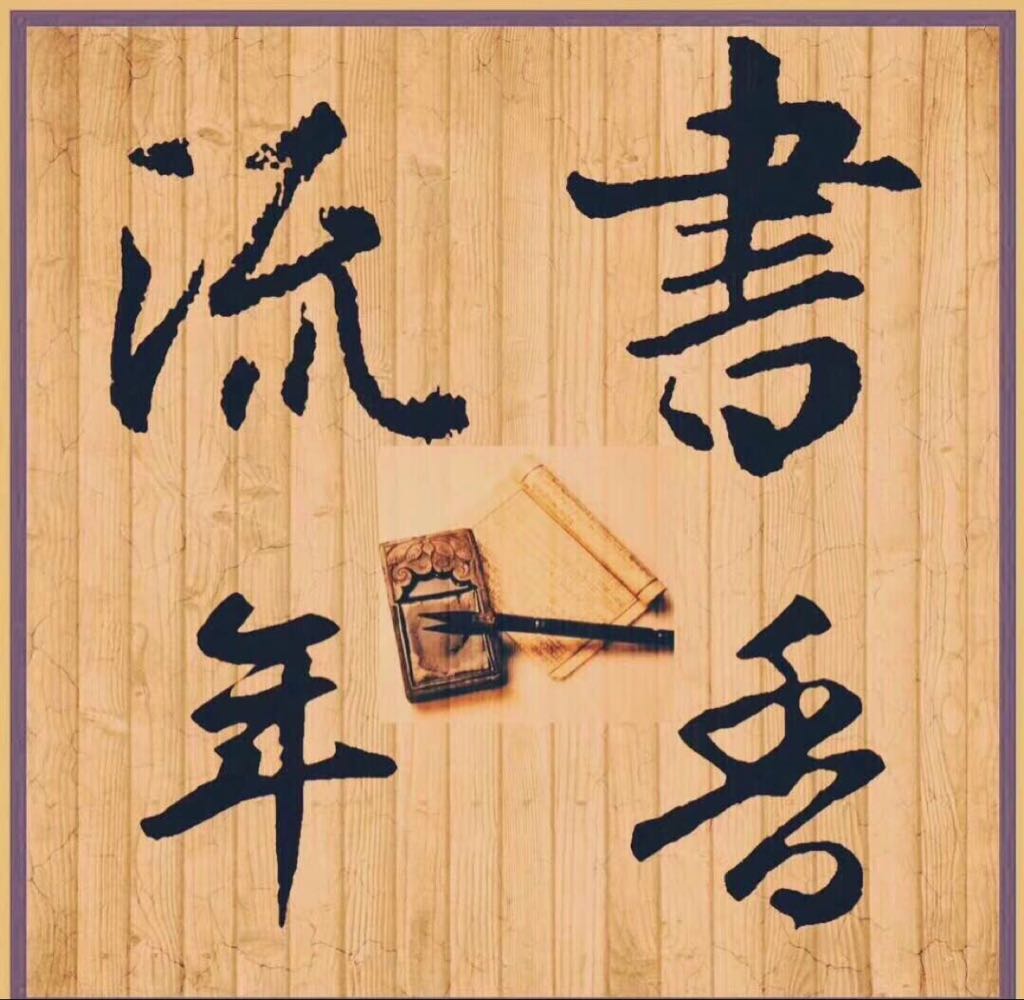 書香
流年